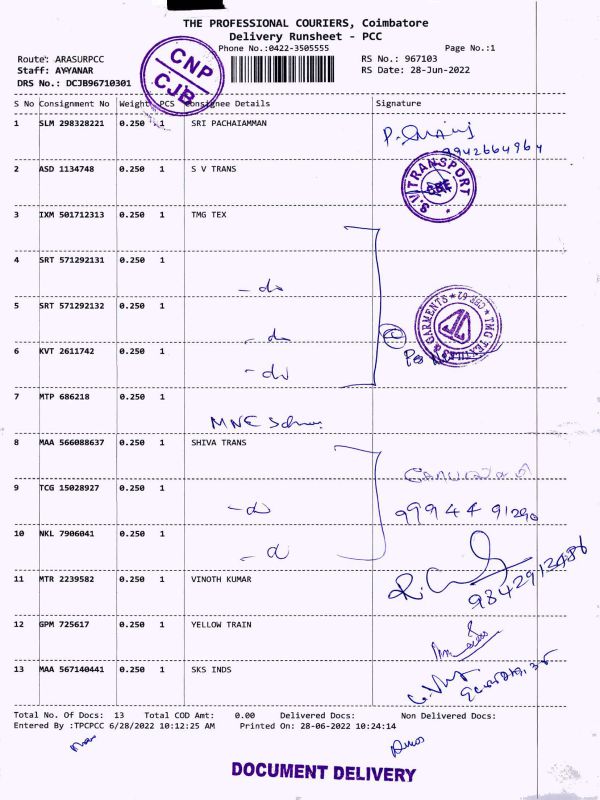 THE PROFESSIONAL COURIERS, Coimbatore
Delivery Runsheet - PCC
Phone No.:0422-3505555
Page No.:1
Route: ARASURPCC
RS No.: 967103
Staff: AYYANAR
RS Date: 28-Jun-2022
DRS No.: DCJB96710301
CNP
CJB
S No Consignment No Weight PCS Consignee Details Signature
1 SLM 298328221 0.250 1 SRI PACHAIAMMAN
9942664964
2 ASD 1134748 0.250 1 S V TRANS
S.V.TRANSPORT
CBE
3 IXM 501712313 0.250 1 TMG TEX
4 SRT 571292131 0.250 1
- do
5 SRT 571292132 0.250 1
- do
TMG TEXTILES & GARMENTS * CBE-62 *
6 KVT 2611742 0.250 1
- do
7 MTP 686218 0.250 1
MNE
8 MAA 566088637 0.250 1 SHIVA TRANS
9 TCG 15028927 0.250 1
- do
99944 91290
10 NKL 7906041 0.250 1
- do
11 MTR 2239582 0.250 1 VINOTH KUMAR
9842912486
12 GPM 725617 0.250 1 YELLOW TRAIN
13 MAA 567140441 0.250 1 SKS INDS
Total No. Of Docs: 13 Total COD Amt: 0.00 Delivered Docs: Non Delivered Docs:
Entered By :TPCPCC 6/28/2022 10:12:25 AM Printed On: 28-06-2022 10:24:14
DOCUMENT DELIVERY